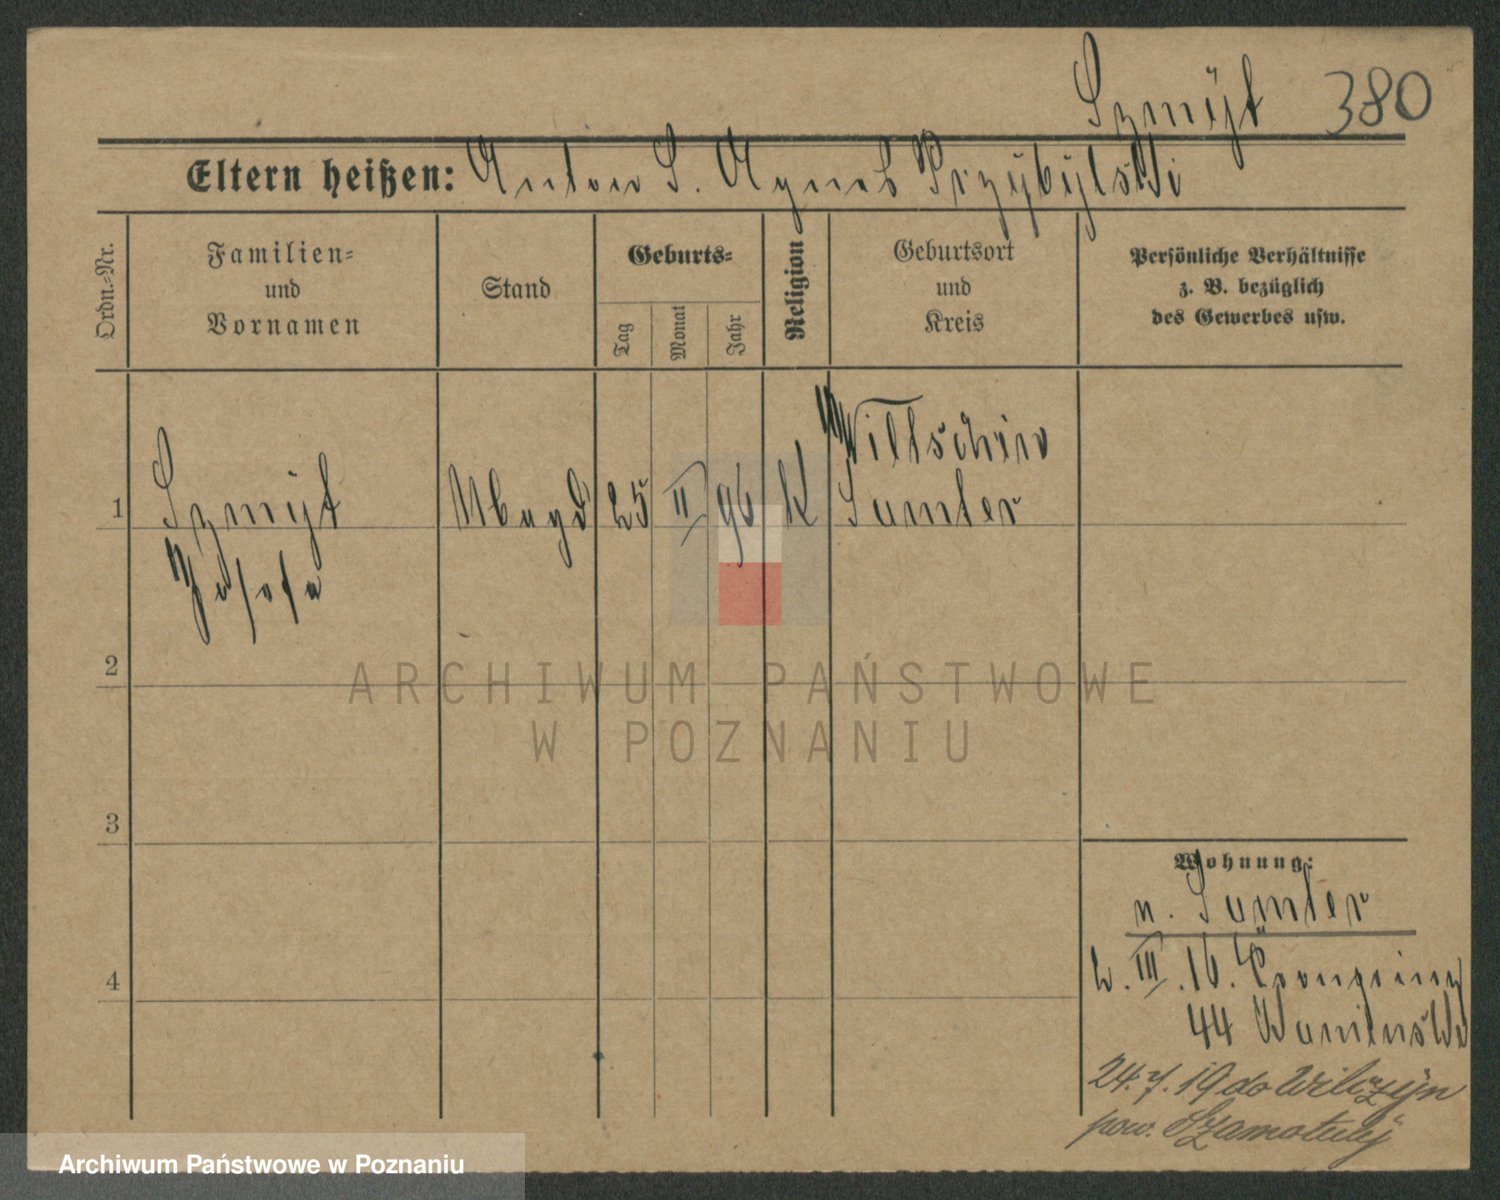 Szmÿt 380
Eltern heißen: Anton S. Agnes Przÿbÿlski
Ordn.-Nr.
Familien-
und
Vornamen
Stand
Geburts-
Tag
Monat
Jahr
Religion
Geburtsort
und
Kreis
Persönliche Verhältnisse
z. B. bezüglich
des Gewerbes usw.
1
Szmÿt
Josefa
Magd
25
II
96
K
Wiltschin
Samter
2
3
4
Wohnung:
n. Samter
2. III. 16.
44
24. 7. 19 do Wilczÿn
pow. Szamotułÿ
ARCHIWUM PAŃSTWOWE
W POZNANIU
Archiwum Państwowe w Poznaniu